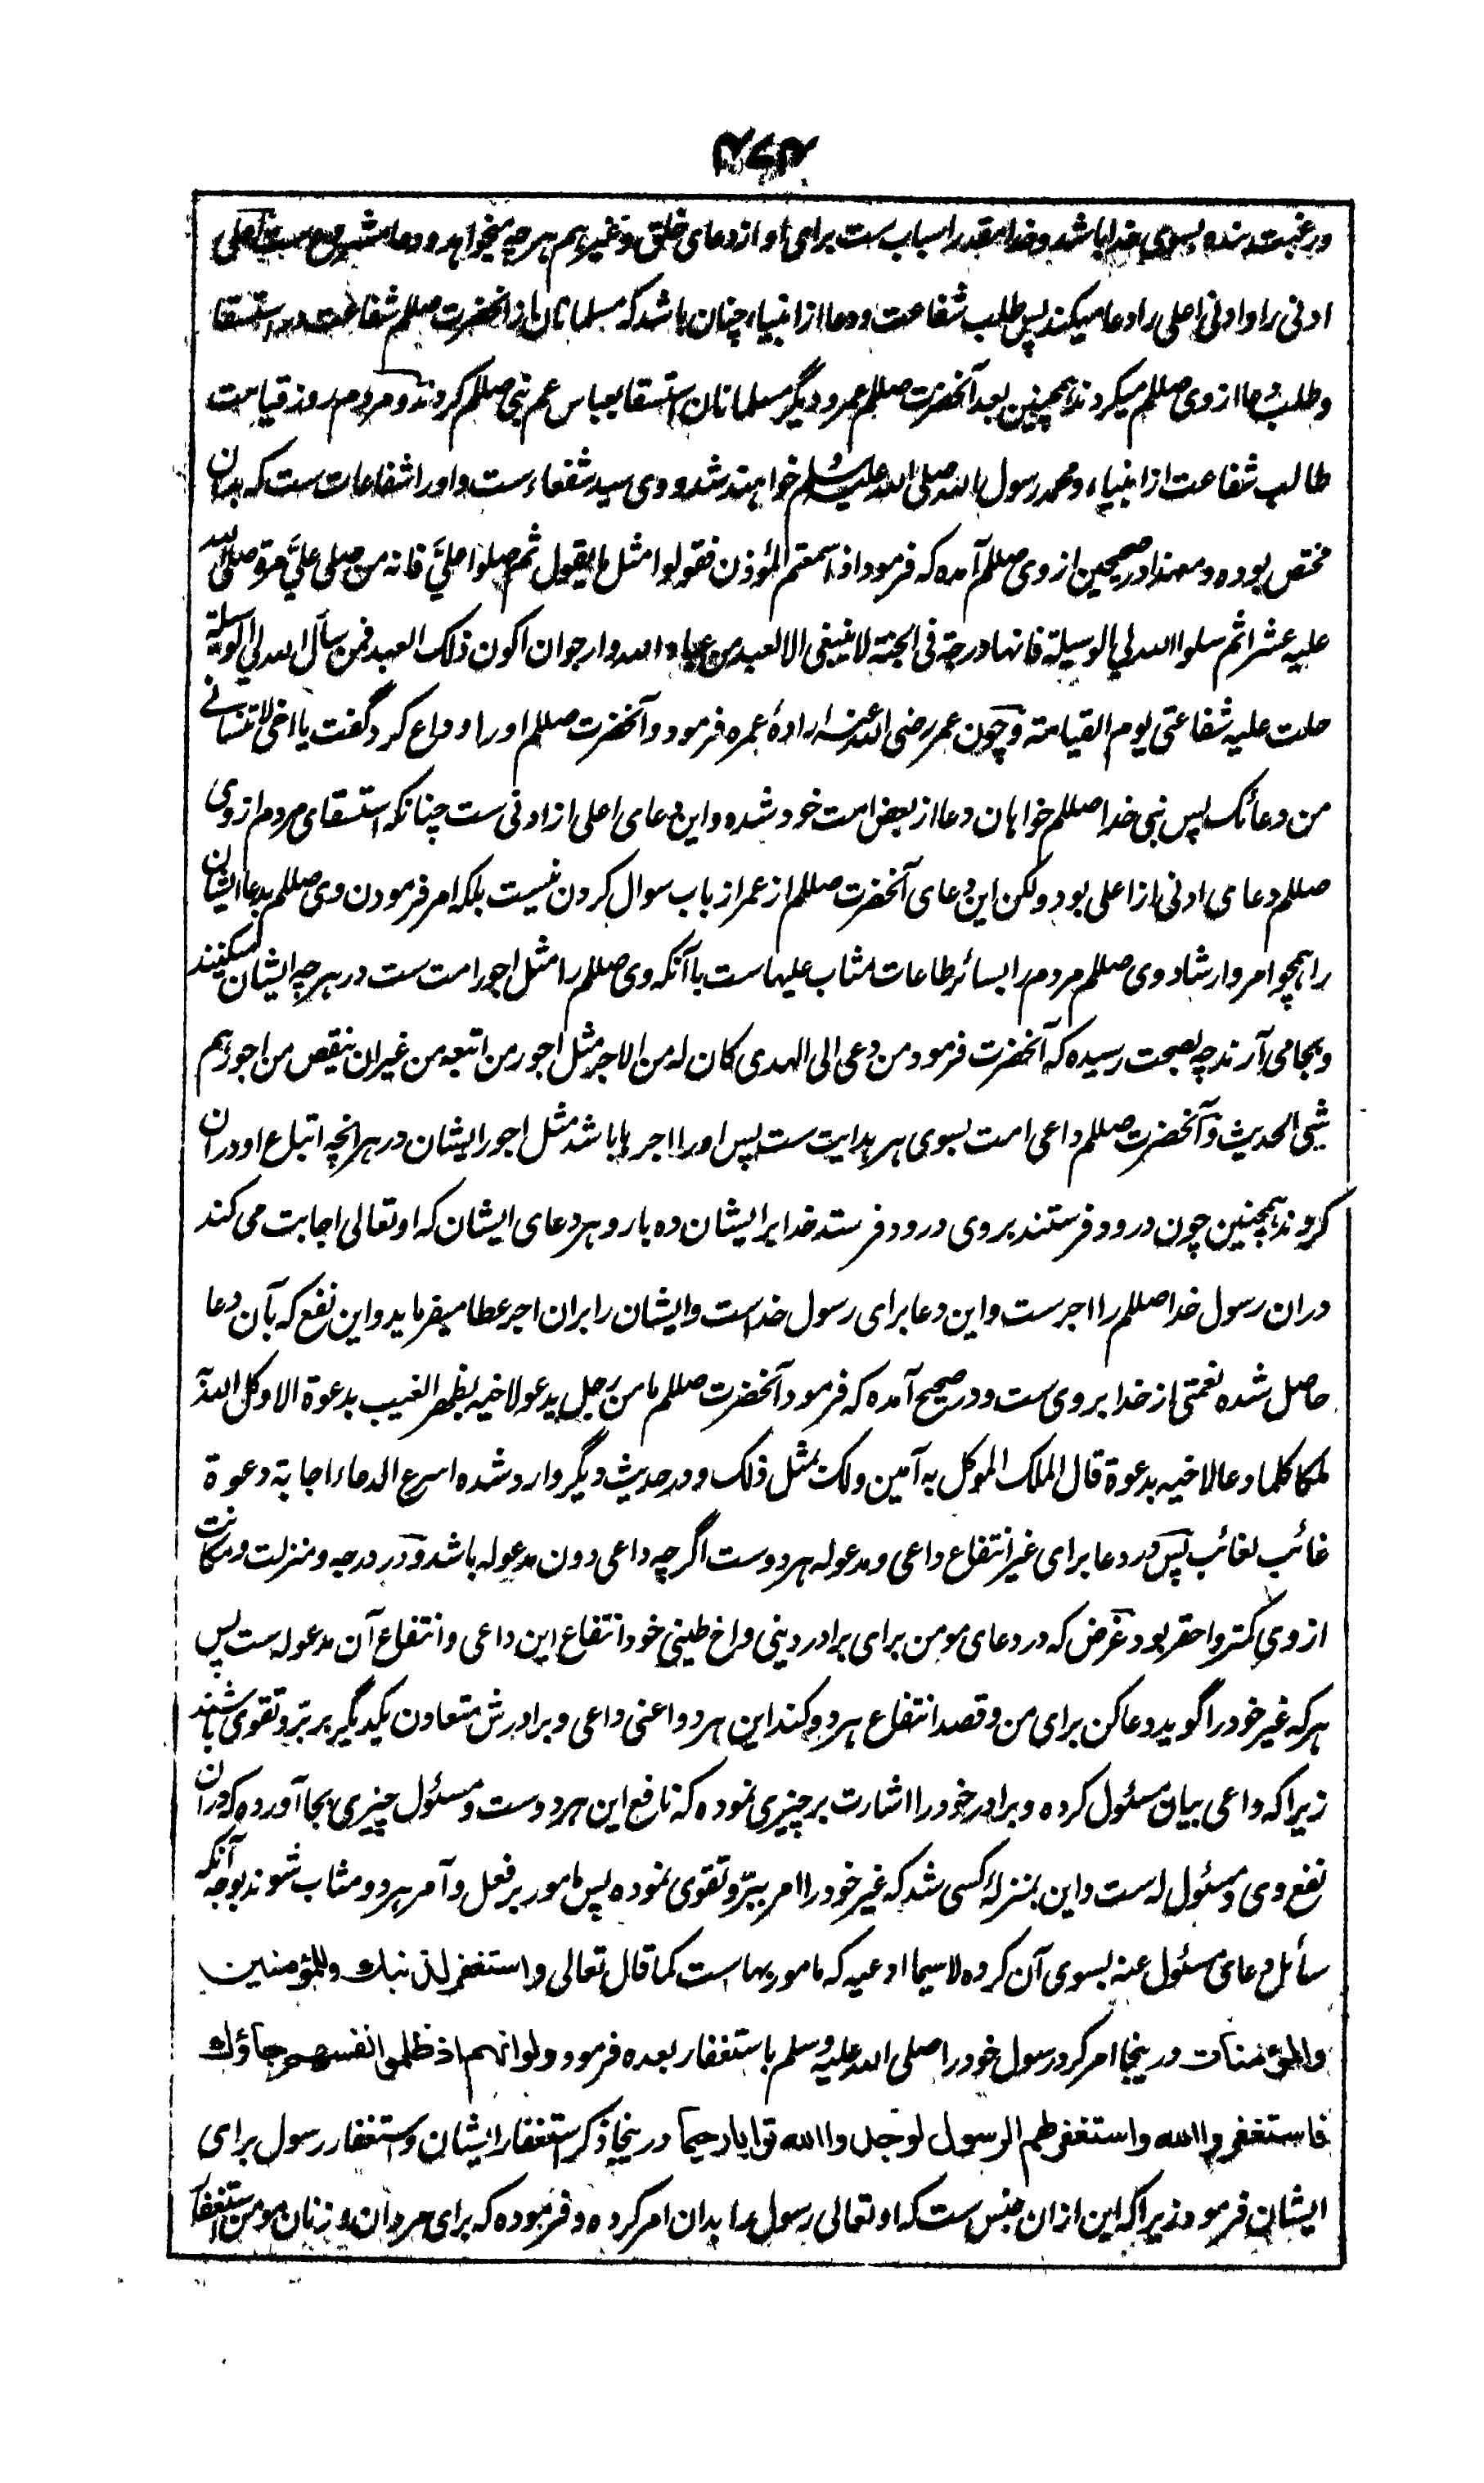 ۲۶۲
ورغبت بنده بسوی خدا باشد و خدا مقدر اسباب ست برای او از دعای خلق و غیرهم هرچه میخواهد و دعا مشروع ست اعلی
ادنی را و ادنی اعلی را دعا میکند پس طلب شفاعت و دعا از انبیاء چنان باشد که مسلمانان از آنحضرت صللم شفاعت در استسقا
و طلب دعا از وی صللم میکردند همچنین بعد آنحضرت صللم عمر و دیگر مسلمانان استسقا بعباس عم نبی صللم کردند و مردم روز قیامت
طالب شفاعت از انبیاء و محمد رسول الله صلی الله علیه وسلم خواهند شد و وی سید شفعاء ست و او را شفاعات ست که بدان
مختص بوده و معهذا در صحیحین از وی صللم آمده که فرمود اذا سمعتم المؤذن فقولوا مثل ما یقول ثم صلوا علیَّ فانه من صلی علیَّ مرة صلی الله
علیه عشرا ثم سلوا الله لی الوسیلة فانها درجة فی الجنة لا ینبغی الا لعبد من عباد الله وارجو ان اکون ذلک العبد فمن سأل الله لی الوسیلة
حلت علیه شفاعتی یوم القیامة و چون عمر رضی الله عنه ارادهٔ عمره فرمود و آنحضرت صللم او را وداع کرد گفت یا اخی لا تنسانی
من دعائک پس نبی خدا صللم خواهان دعا از بعض امت خود شده و این دعای اعلی از ادنی ست چنانکه استسقای مردم از وی
صللم دعای ادنی از اعلی بود ولکن این دعای آنحضرت صللم از عمر از باب سوال کردن نیست بلکه امر فرمودن وی صللم بدعا ایشان
را همچو امر و ارشاد وی صللم مردم را بسائر طاعات مثاب علیهاست با آنکه وی صللم را مثل اجور امت ست در هرچه ایشان میکنند
و بجا می آرند چه بصحت رسیده که آنحضرت فرمود من دعی الی الهدی کان له من الاجر مثل اجور من اتبعه من غیر ان ینقص من اجورهم
شیٔ الحدیث و آنحضرت صللم داعی امت بسوی هر هدایت ست پس او را اجرها باشد مثل اجور ایشان در هرانچه اتباع او دران
کردند همچنین چون درود فرستند بر وی درود فرستد خدا بر ایشان ده بار و هر دعای ایشان که او تعالی اجابت می کند
دران رسول خدا صللم را اجرست و این دعا برای رسول خداست و ایشان را بران اجر عطا میفرماید و این نفع که بآن دعا
حاصل شده نعمتی از خدا بر وی ست و در صحیح آمده که فرمود آنحضرت صللم ما من رجل یدعو لاخیه بظهر الغیب بدعوة الا وکل الله
ملکا کلما دعا لاخیه بدعوة قال الملک الموکل به آمین ولک بمثل ذلک و در حدیث دیگر وارد شده اسرع الدعاء اجابة دعوة
غائب لغائب پس در دعا برای غیر انتفاع داعی و مدعو له هر دوست اگرچه داعی دون مدعو له باشد و در درجه و منزلت و مکانت
از وی کمتر و احقر بود غرض که در دعای مومن برای برادر دینی و اخ طینی خود انتفاع این داعی و انتفاع آن مدعو له ست پس
هر که غیر خود را گوید دعا کن برای من و قصد انتفاع هر دو کند این هر دو اعنی داعی و برادرش متعاون یکدیگر بر برّ و تقوی باشند
زیرا که داعی بیان مسئول کرده و برادر خود را اشارت بر چیزی نموده که نافع این هر دوست و مسئول چیزی بجا آورده که دران
نفع وی و مسئول له ست و این بمنزلهٔ کسی شد که غیر خود را امر ببرّ و تقوی نموده پس مامور بر فعل و آمر هر دو مثاب شوند بوجه آنکه
سائل دعای مسئول عنه بسوی آن کرده لاسیما ادعیه که مامور بهاست کما قال تعالی واستغفر لذنبك وللمؤمنین
والمؤمنات درینجا امر کرد رسول خود را صلی الله علیه وسلم باستغفار بعده فرمود ولو انهم اذ ظلموا انفسهم جاؤك
فاستغفروا الله واستغفر لهم الرسول لوجدوا الله توابا رحیما درینجا ذکر استغفار ایشان و استغفار رسول برای
ایشان فرمود زیرا که این ازان جنس ست که او تعالی رسول را بدان امر کرده و فرموده که برای مردان و زنان مومن استغفار